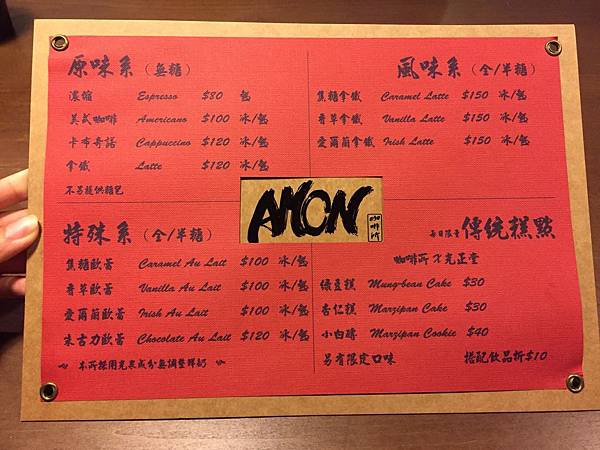 原味系（無糖）
濃縮 Espresso $80 熱
美式咖啡 Americano $100 冰/熱
卡布奇諾 Cappuccino $120 冰/熱
拿鐵 Latte $120 冰/熱
不另提供糖包
風味系（全/半糖）
焦糖拿鐵 Caramel Latte $150 冰/熱
香草拿鐵 Vanilla Latte $150 冰/熱
愛爾蘭拿鐵 Irish Latte $150 冰/熱
AMON
咖啡所
特殊系（全/半糖）
焦糖歐蕾 Caramel Au Lait $100 冰/熱
香草歐蕾 Vanilla Au Lait $100 冰/熱
愛爾蘭歐蕾 Irish Au Lait $100 冰/熱
朱古力歐蕾 Chocolate Au Lait $120 冰/熱
本所採用充泉成分無調整鮮奶
每日限量 傳統糕點
咖啡所 X 充正堂
綠豆糕 Mung-bean Cake $30
杏仁糕 Marzipan Cake $30
小白磚 Marzipan Cookie $40
另有限定口味 搭配飲品折$10